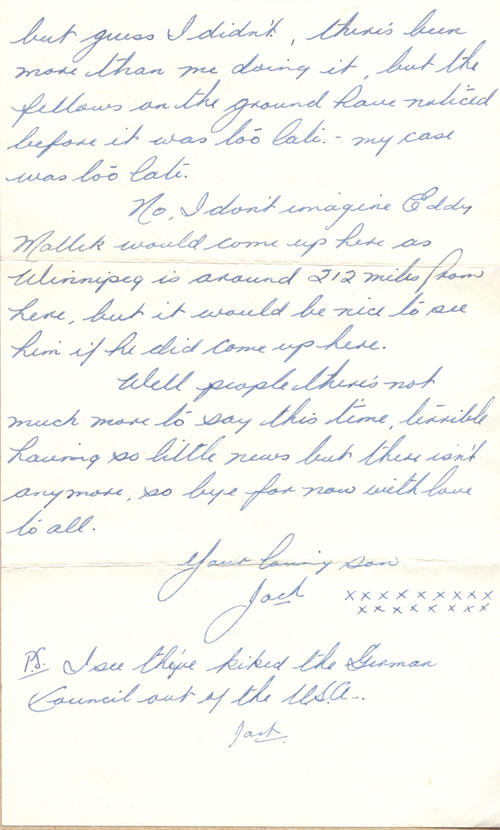 but guess I didn't, there's been
more than me doing it, but the
fellows on the ground have noticed
before it was too late. - my case
was too late.
No, I don't imagine Eddy
Mallek would come up here as
Winnipeg is around 212 miles from
here, but it would be nice to see
him if he did come up here.
Well people there's not
much more to say this time, terrible
having so little news but there isn't
anymore, so bye for now with love
to all.
Your loving son
Jack x x x x x x x x x
x x x x x x x x
P.S. I see they've kiked the German
Council out of the U.S.A..
Jack.